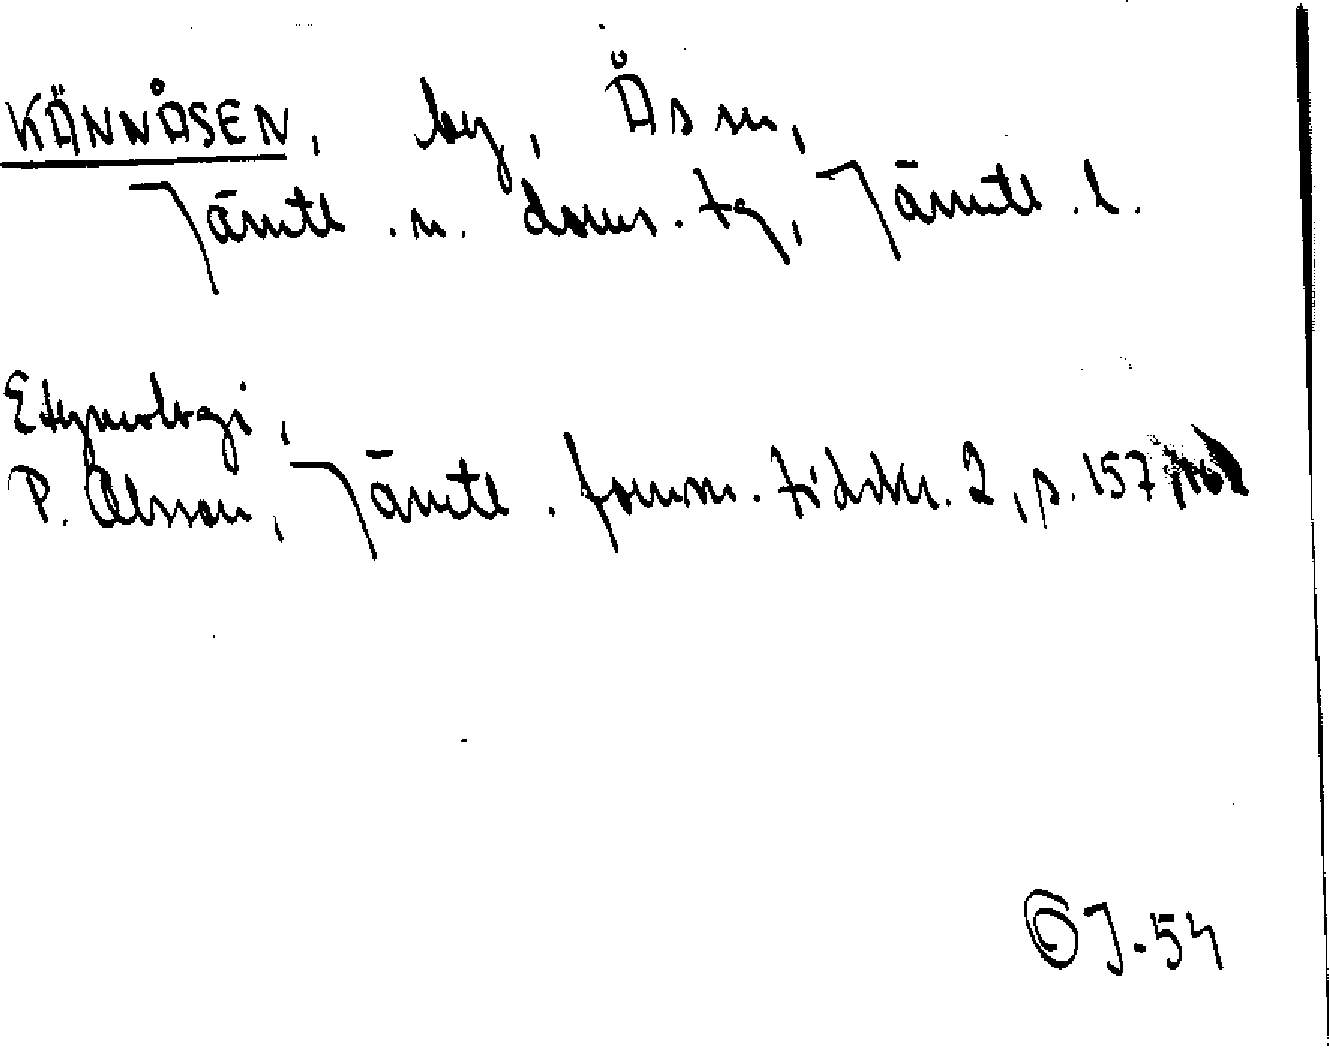 KÄNNÅSEN, by, Ås sn,
Jämtl. n. doms. tg, Jämtl. l.
Etymologi,
P. Olsson, Jämtl. fornm. tidskr. 2, p. 157
GJ-54